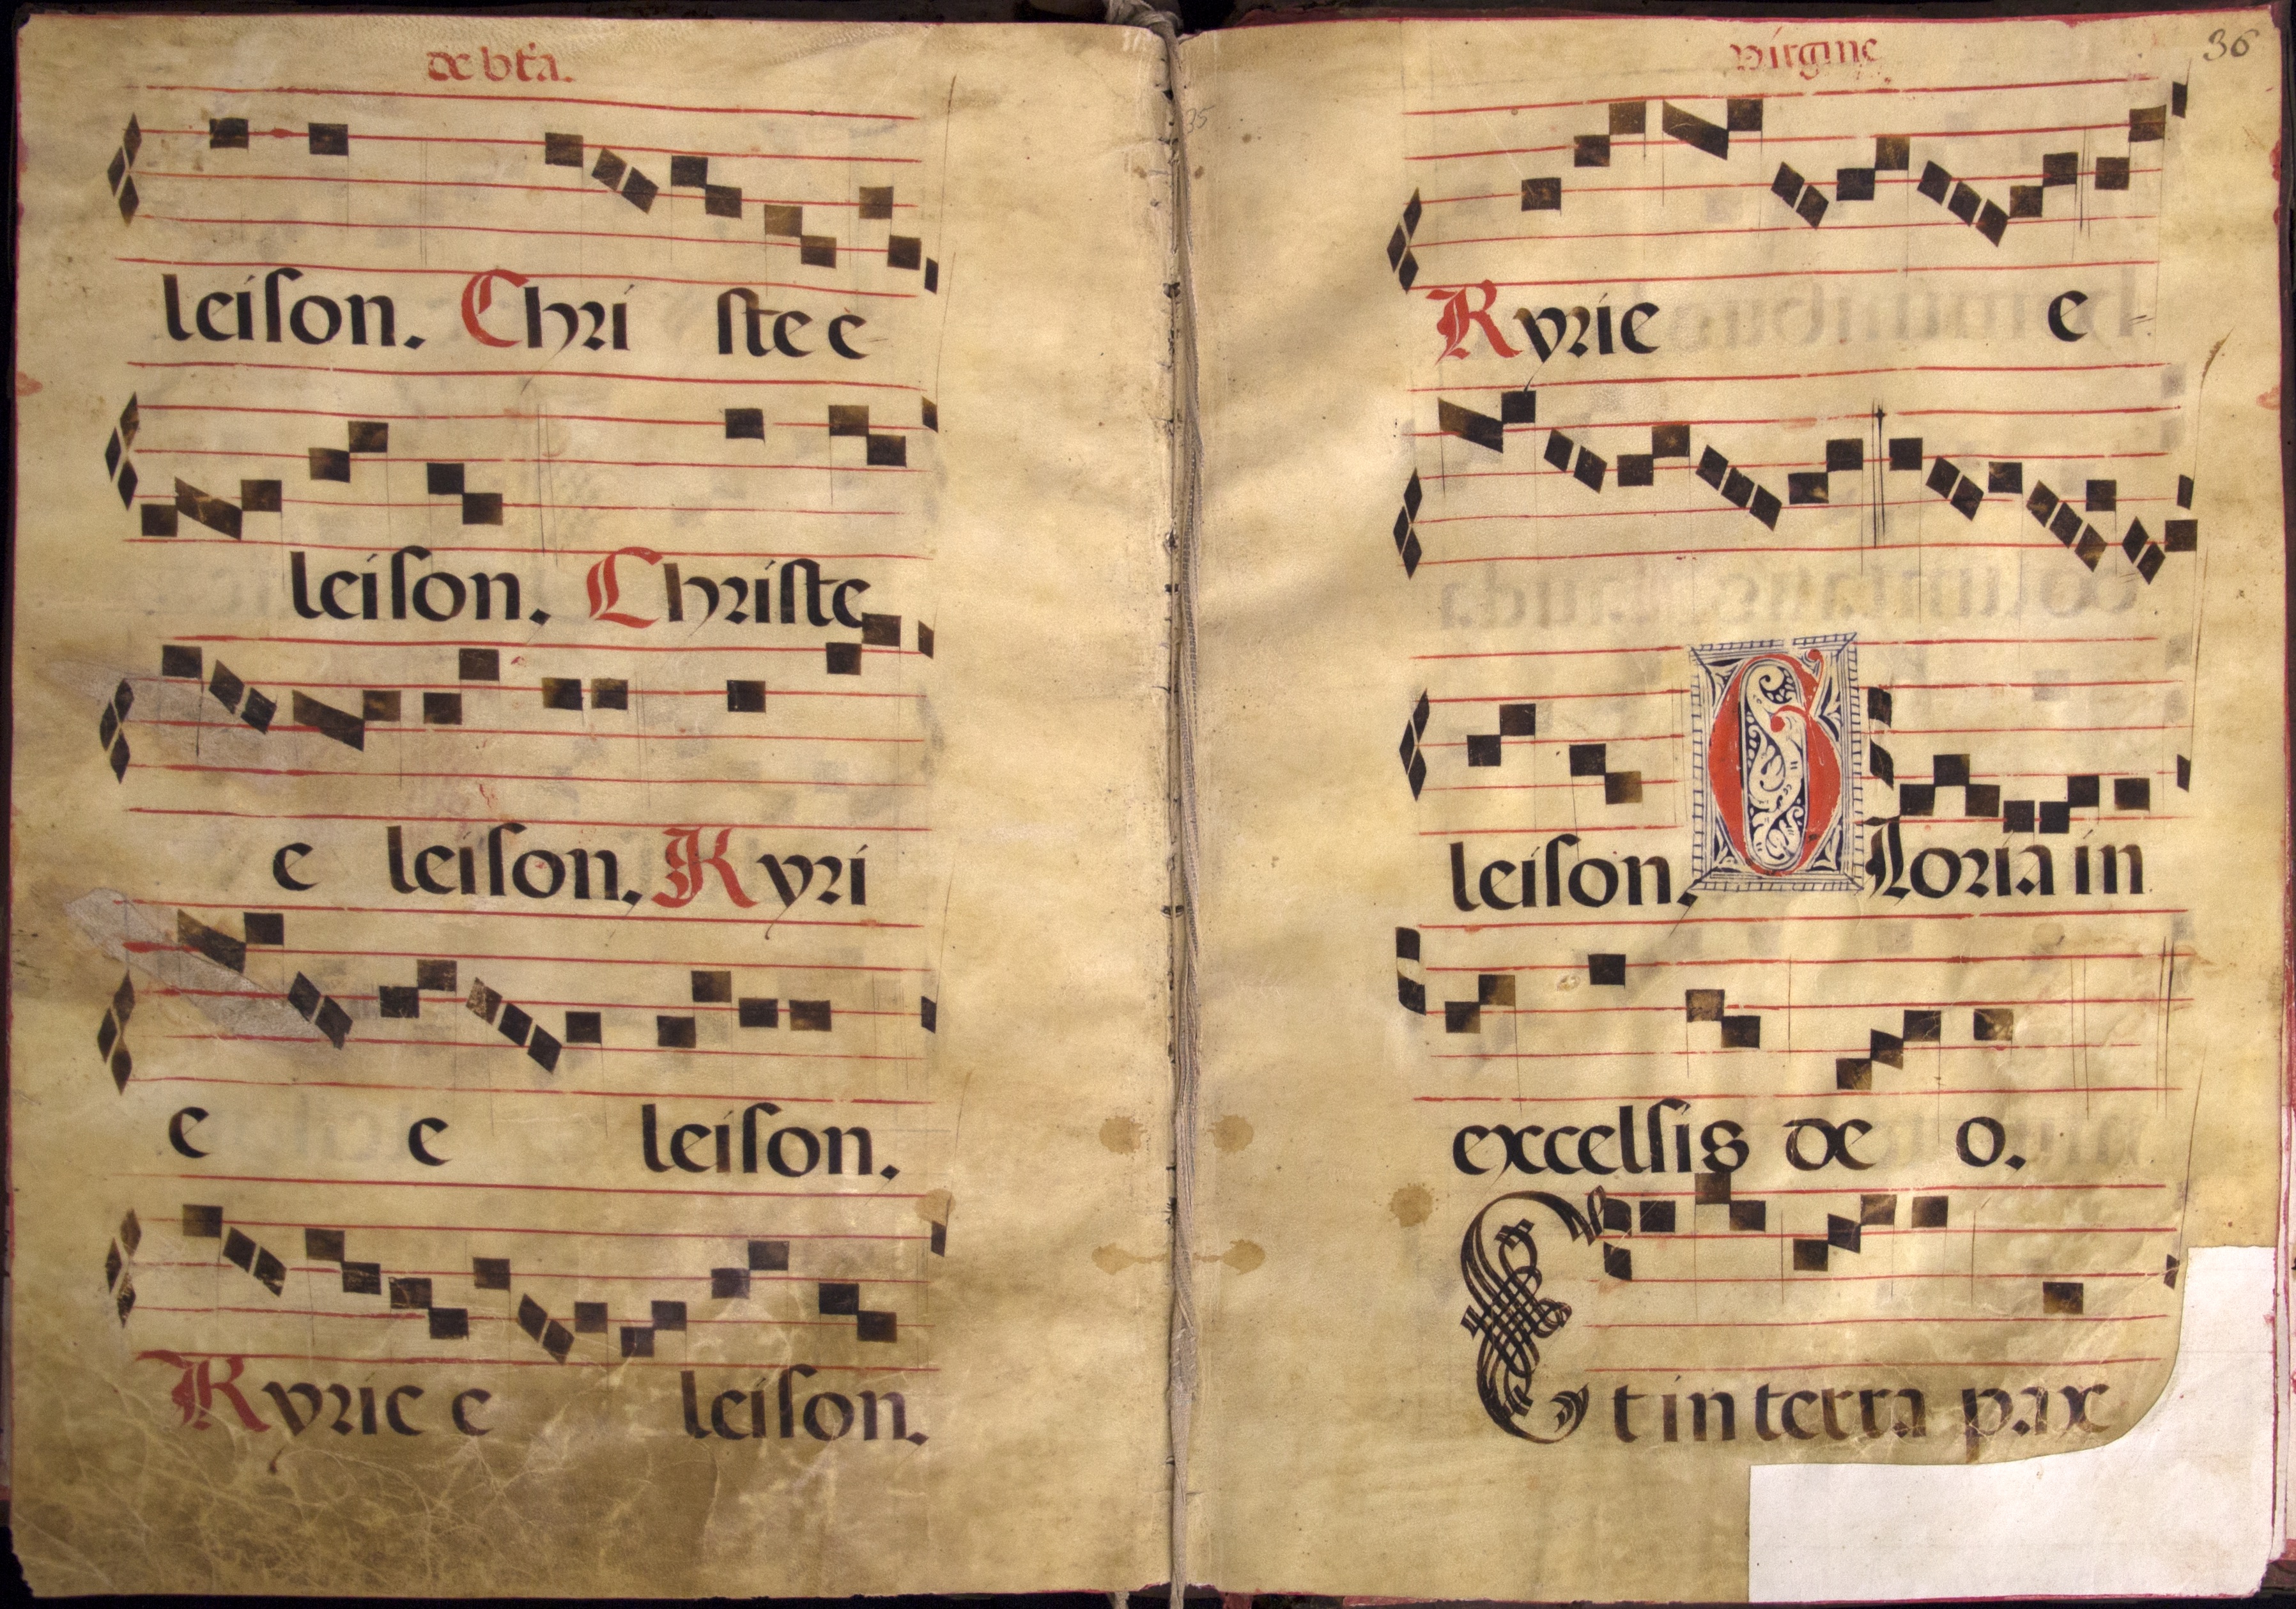 de bta.
leison. Chri ste e
leison. Christe
e leison. Kyri
e e leison.
Kyrie e leison.
virgine
36
35
Kyrie e
leison. Gloria in
excelsis de o.
Et in terra pax